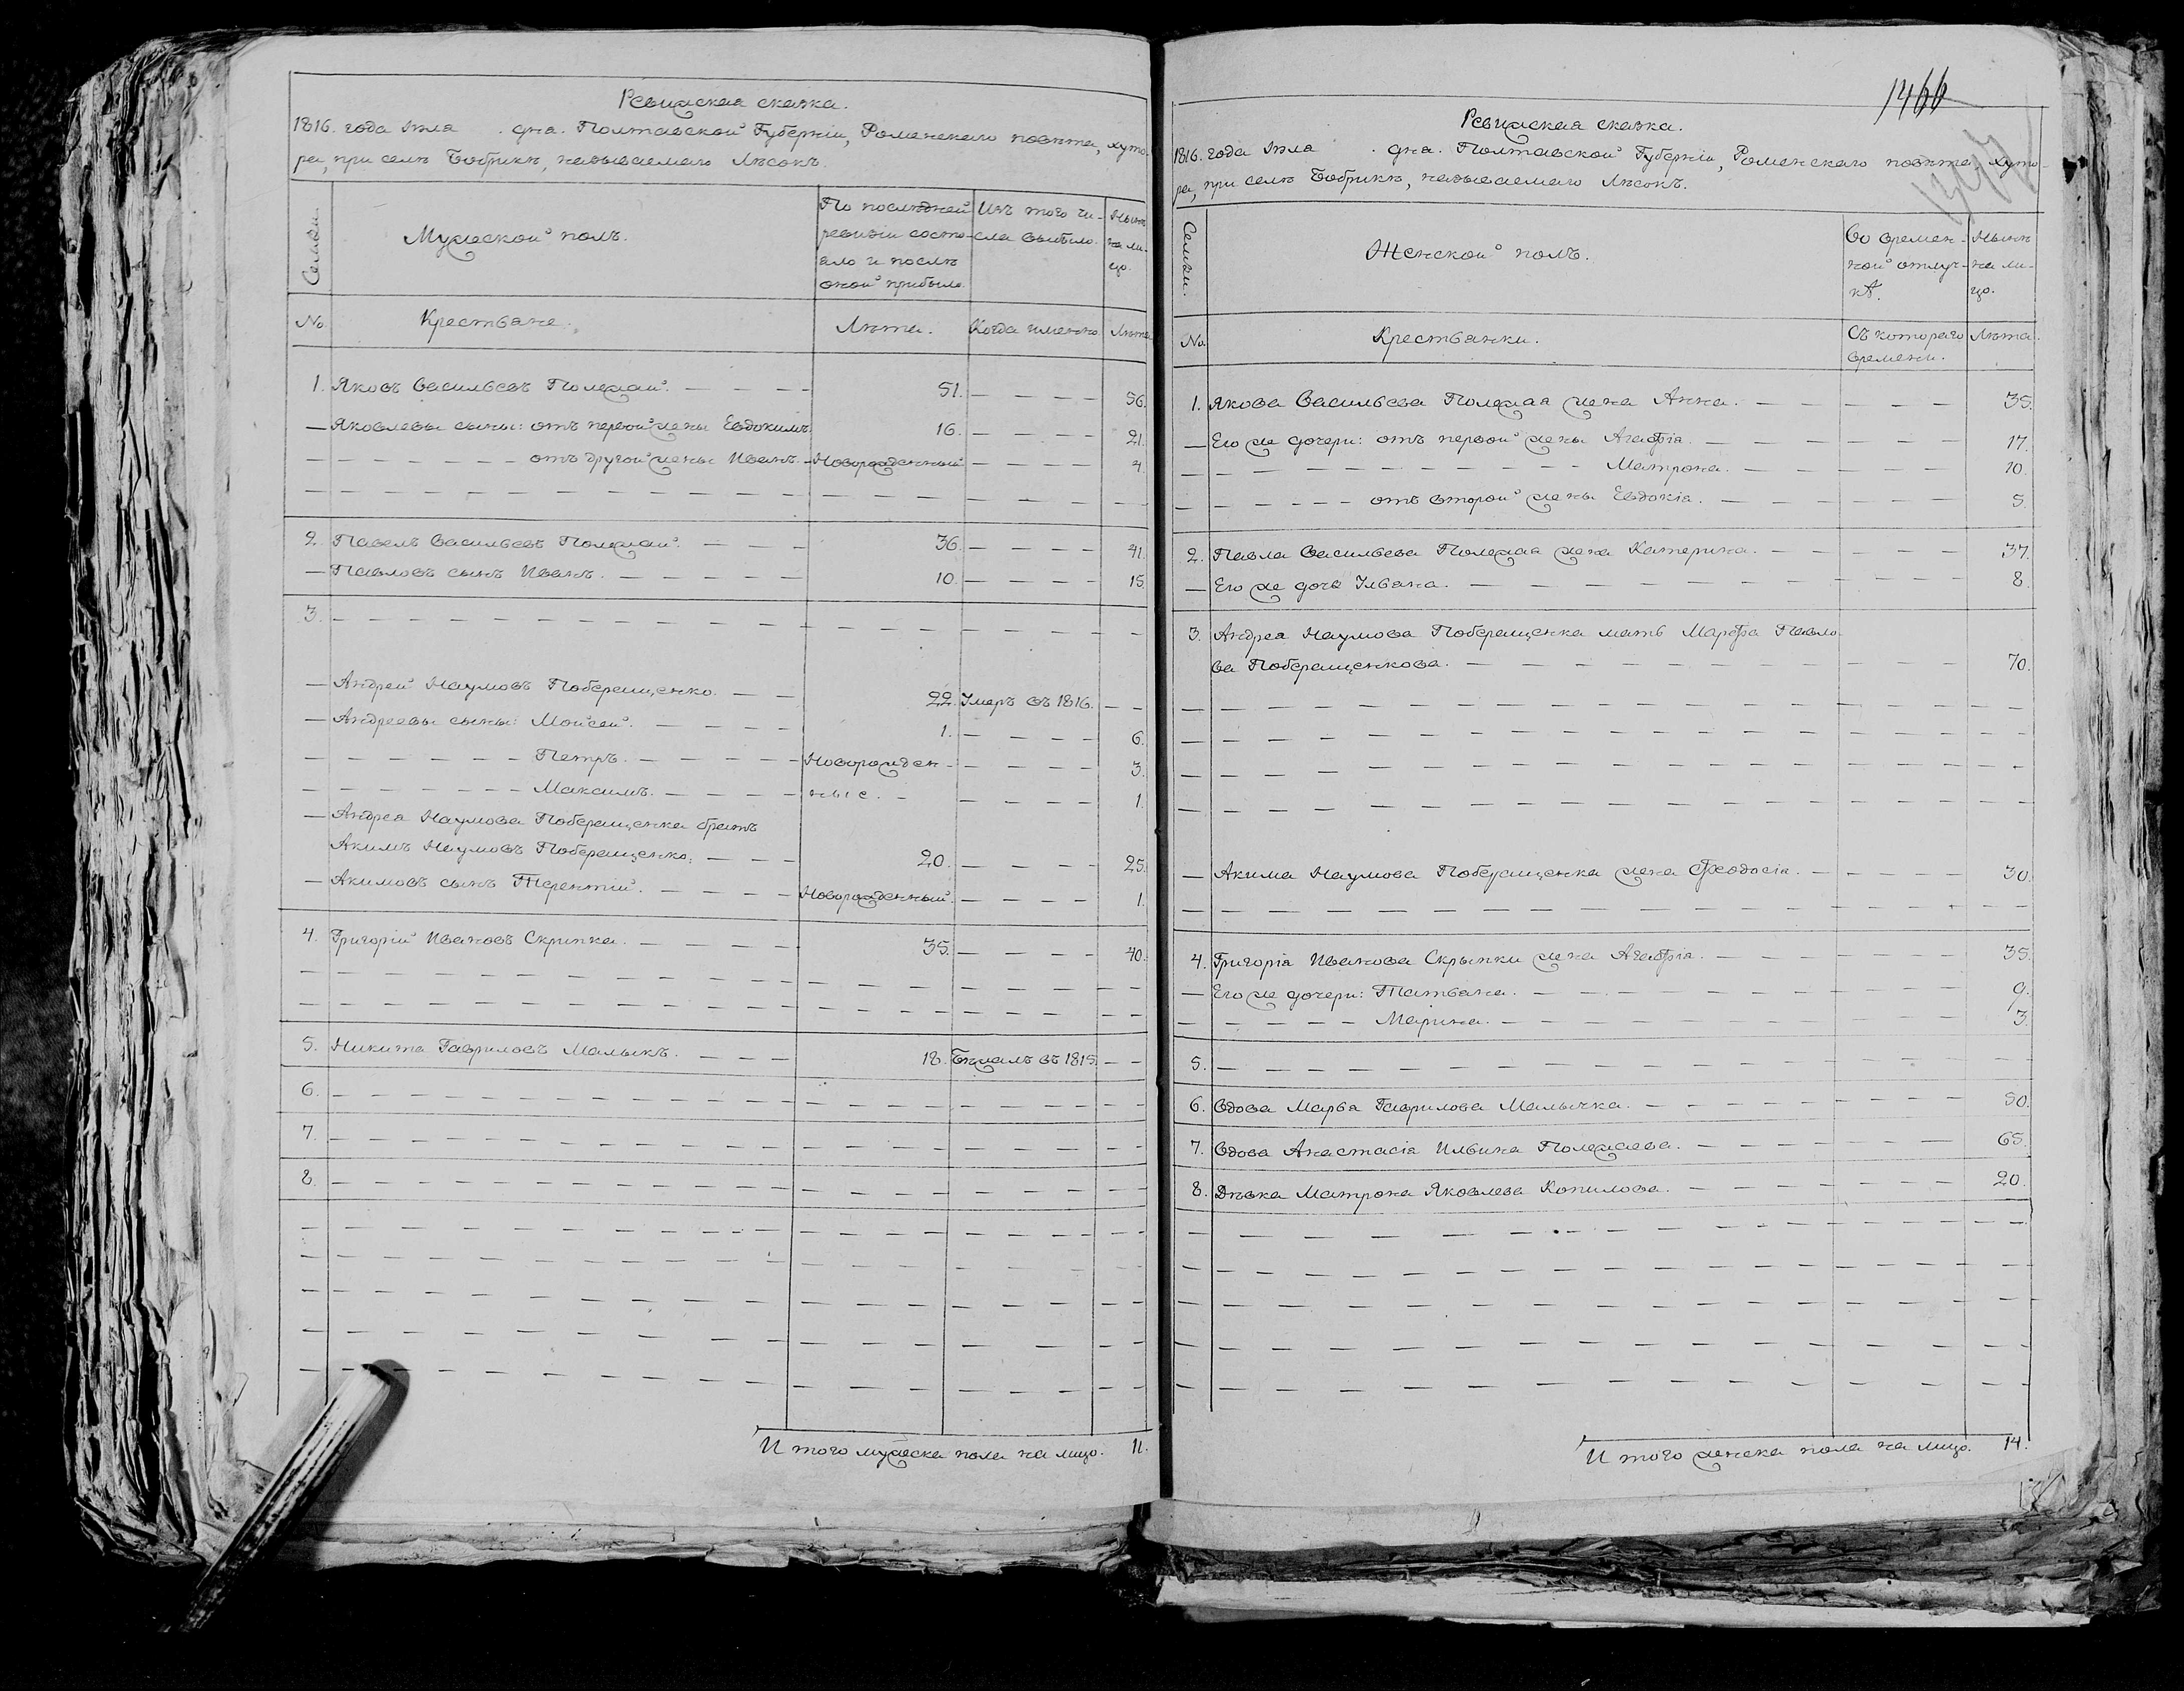 Ревижская сказка.
1816. года Іюля . дня. Полтавской Губерніи, Роменскаго повѣта, хуто-
ра, при селѣ Бобрикѣ, называемаго Лѣсокъ.
Семьи.
Мужеской полъ.
По послѣдней
ревизіи состо-
яло и послѣ
оной прибыло.
Изъ того чи-
сла выбыло.
Нынѣ
на ли-
цо.
№
Крестьяне.
Лѣта.
Когда именно.
Лѣта.
1. Яковъ Васильевъ Полежай. 51. 56.
Яковлевы сыны: отъ первой жены Евдокимъ 16. 21.
отъ другой жены Иванъ. Новорожденный 4.
2. Павелъ Васильевъ Полежай. 36. 41.
Павловъ сынъ Иванъ. 10. 15.
3.
Андрей Наумовъ Поберащенко. 22. Умеръ въ 1816.
Андреевы сыны: Мойсей. 1. 6.
Петръ. Новорожден- 3.
Максимъ. ные. 1.
Андрея Наумова Поберащенка братъ
Акимъ Наумовъ Поберащенко. 20. 25.
Акимовъ сынъ Терентій. Новорожденный. 1.
4. Григорій Ивановъ Скрипка. 35. 40.
5. Никита Гавриловъ Малыкъ. 18. Бѣжалъ въ 1815.
6.
7.
8.
И того мужеска пола на лицо. 11.
1466
Ревижская сказка.
1816. года Іюля . дня. Полтавской Губерніи, Роменскаго повѣта хуто-
ра, при селѣ Бобрикѣ, называемаго Лѣсокъ.
Семьи.
Женской полъ.
Во времен-
ной отлуч-
кѣ.
Нынѣ
на ли-
цо.
№
Крестьянки.
Съ котораго
времени.
Лѣта.
1. Якова Васильева Полежая жена Анна. 35.
Его же дочери: отъ первой жены Агафія. 17.
Матрона. 10.
отъ второй жены Евдокія. 5.
2. Павла Васильева Полежая жена Катерина. 37.
Его же дочь Ульяна. 8.
3. Андрея Наумова Поберащенка мать Марфа Павло-
ва Поберащенкова. 70.
Акима Наумова Поберащенка жена Феодосія. 30.
4. Григорія Иванова Скрыпки жена Агафія. 35.
Его же дочери: Татьяна. 9.
Марина. 3.
5.
6. Вдова Марья Гаврилова Малычка. 50.
7. Вдова Анастасія Ильина Полежаева. 65.
8. Дѣвка Матрона Яковлева Копилова. 20.
И того женска пола на лицо. 14.